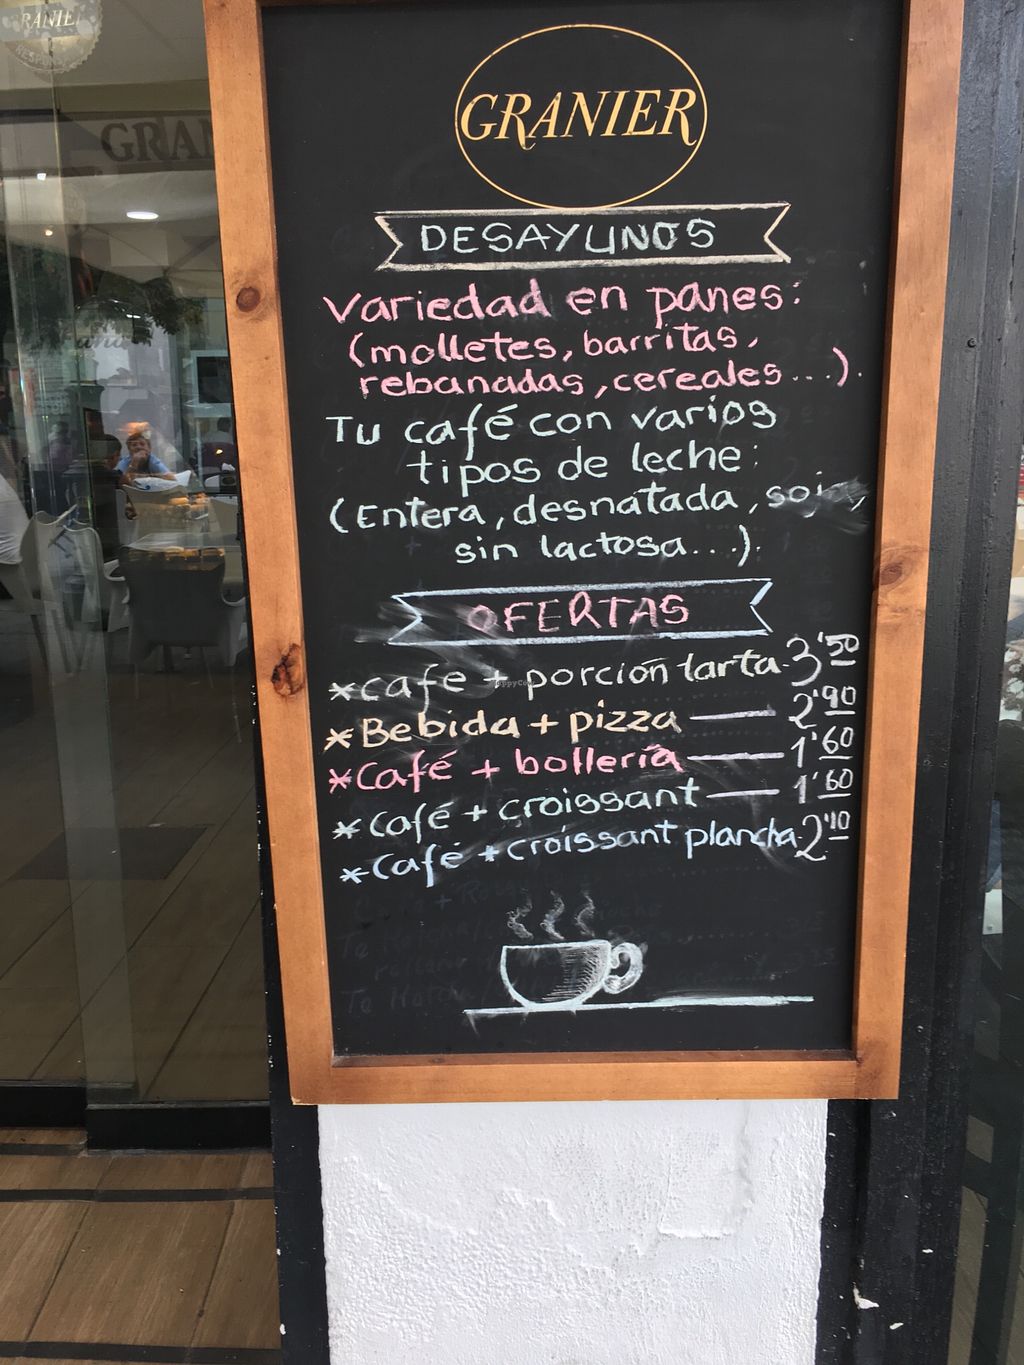 GRANIER
DESAYUNOS
Variedad en panes:
(molletes, barritas,
rebanadas, cereales...).
Tu café con varios
tipos de leche:
(Entera, desnatada, soja,
sin lactosa...).
OFERTAS
*cafe + porción tarta. 3'50
*Bebida + pizza — 2'90
*Café + bollería — 1'60
*Café + croissant — 1'60
*Café + croissant plancha. 2'10